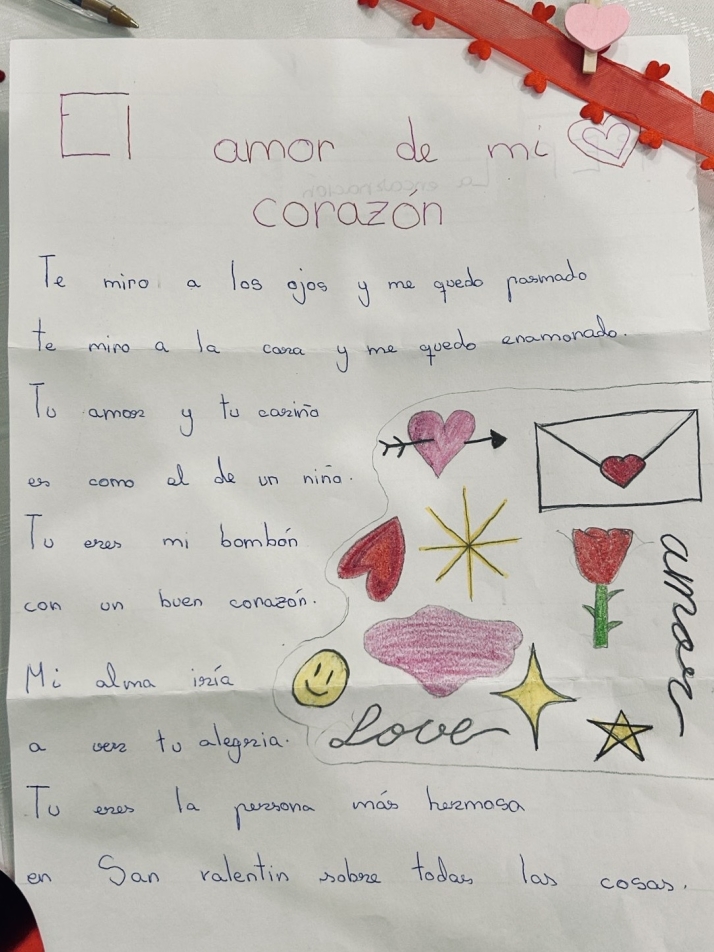 El amor de mi
corazón
Te miro a los ojos y me quedo pasmado
te miro a la cara y me quedo enamorado.
Tu amor y tu cariño
es como el de un niño.
Tu eres mi bombón
con un buen corazón.
Mi alma iría
a ver tu alegria.
Tu eres la persona más hermosa
en San valentin sobre todas las cosas.
amor
Love